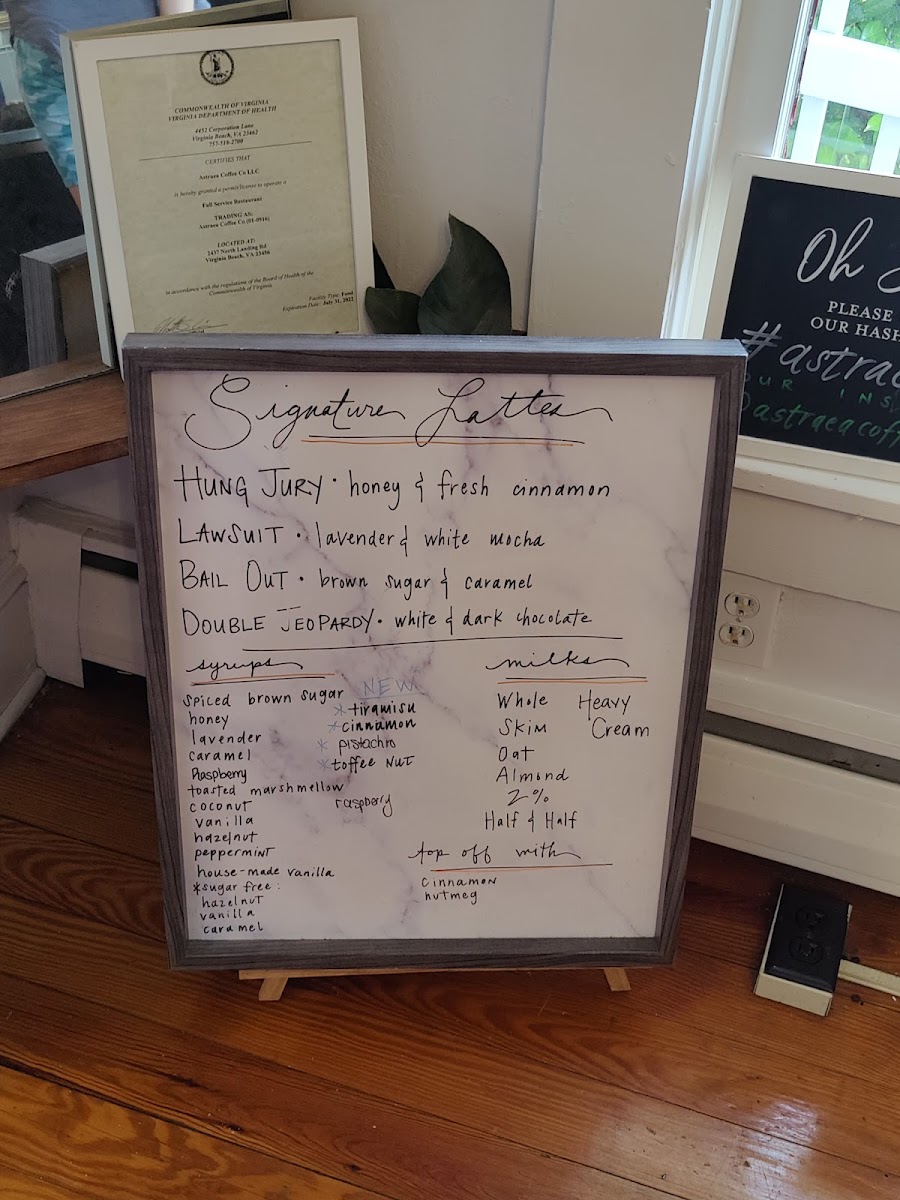 COMMONWEALTH OF VIRGINIA
VIRGINIA DEPARTMENT OF HEALTH
4452 Corporation Lane
Virginia Beach, VA 23462
757-518-2700
CERTIFIES THAT
Astraea Coffee Co LLC
is hereby granted a permit/license to operate a
Full Service Restaurant
TRADING AS:
Astraea Coffee Co (01-0916)
LOCATED AT:
2437 North Landing Rd
Virginia Beach, VA 23456
in accordance with the regulations of the Board of Health of the
Commonwealth of Virginia
Facility Type: Food
Expiration Date: July 31, 2022
Oh
PLEASE
OUR HASH
#astrae
OUR INS
@astraeacoff
Signature Lattes
HUNG JURY · honey & fresh cinnamon
LAWSUIT · lavender & white mocha
BAIL OUT · brown sugar & caramel
DOUBLE JEOPARDY · white & dark chocolate
syrups
spiced brown sugar
honey
lavender
caramel
Raspberry
toasted marshmellow
coconut
vanilla
hazelnut
peppermint
house-made vanilla
*sugar free:
hazelnut
vanilla
caramel
NEW
*tiramisu
*cinnamon
*pistachio
*toffee NUT
raspberry
milks
Whole
Skim
Oat
Almond
2%
Half & Half
Heavy
Cream
top off with
cinnamon
nutmeg